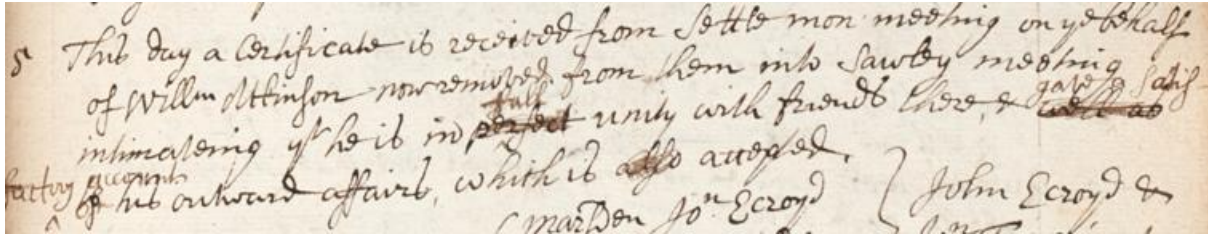 5 This day a Certificate is received from Settle mon: meeting on ye behalf
of Willm Attinson now removed from them into Sawley meeting
full gave Satis-
intimateing yt he is in perfect unity with friends there, & well as
factory account
of his outward affairs, which is also accepted.
Marsden Jon Ecroyd John Ecroyd &